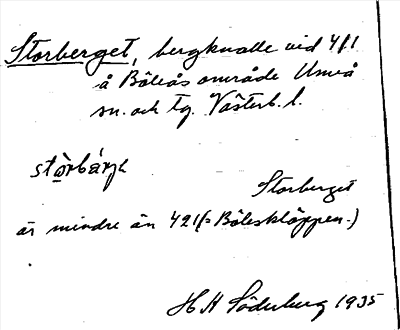 Storberget, bergknalle vid 4/1
å Böleås område Umeå
sn. och tg. Västerb. l.
stòrbárgk
Storberget
är mindre än 421 (= Bölesklåppen.)
H H Söderberg 1935